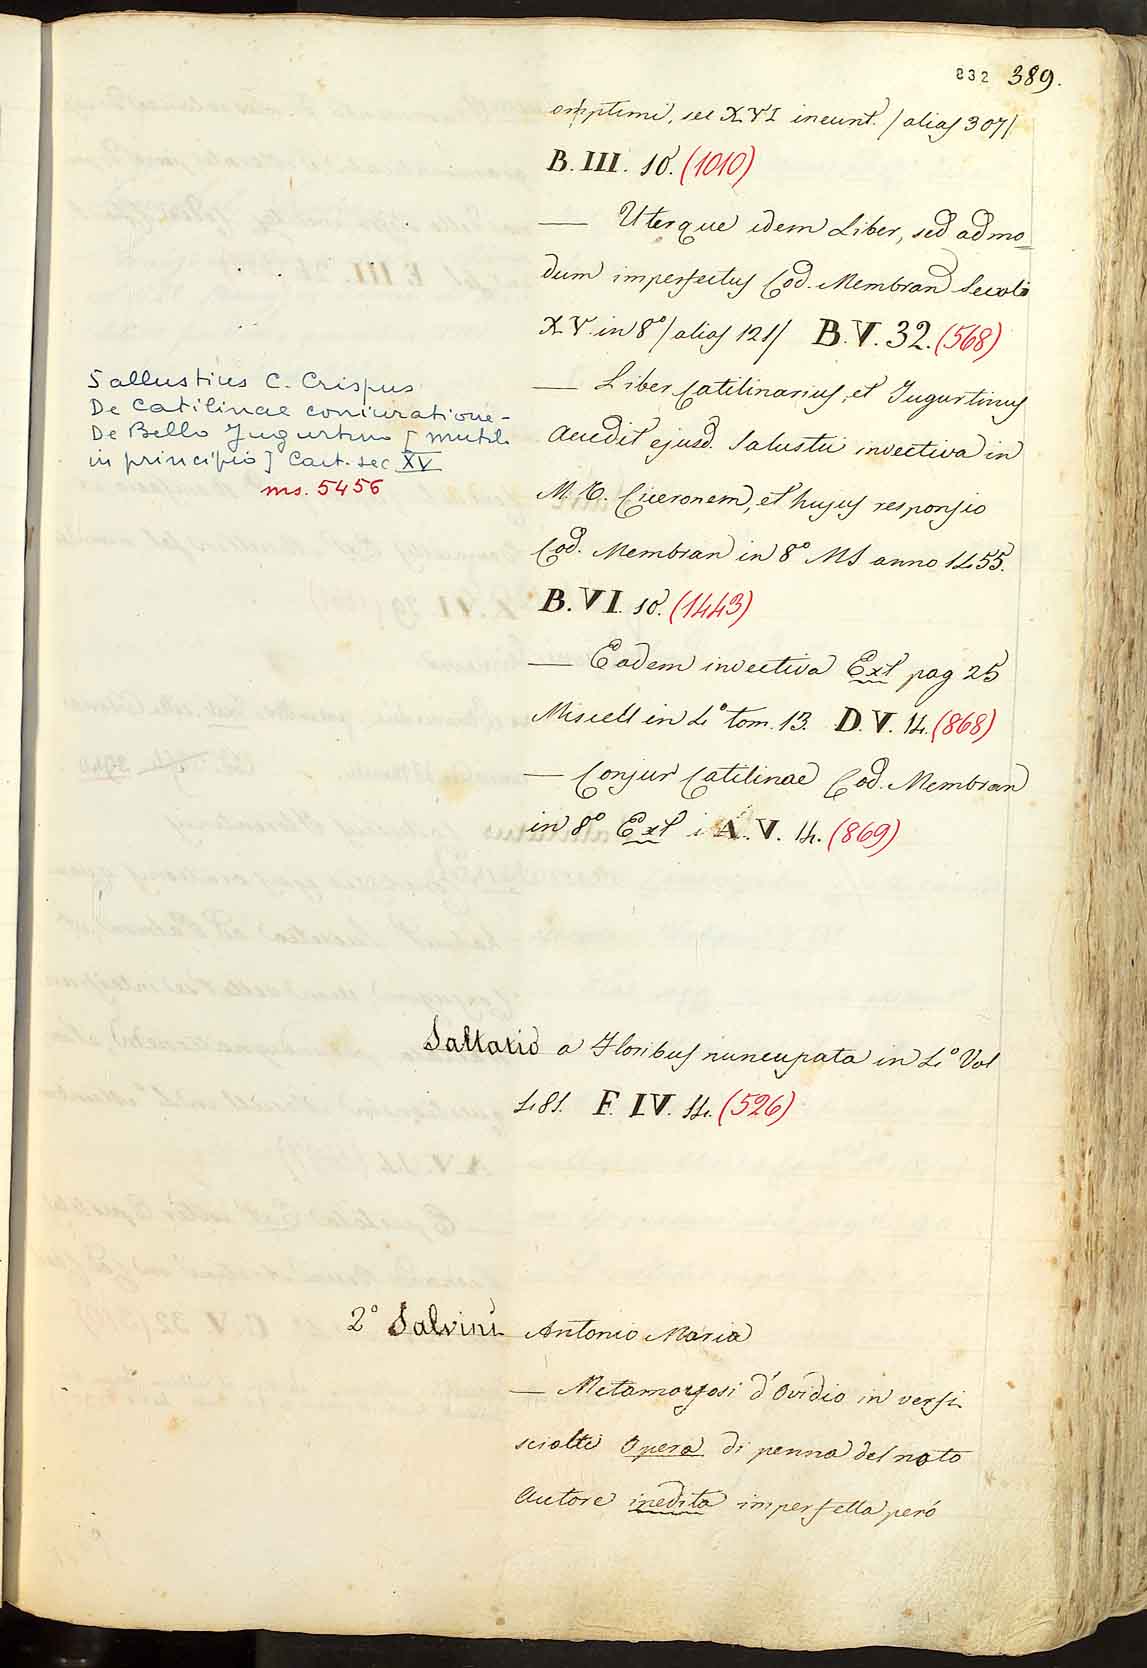 832 389.
omptimi, sec XVI ineunt. /alias 307/
B. III. 10. (1010)
— Uterque idem Liber, sed admo
dum imperfectus Cod. Membran Secoli
XV. in 8° /alias 121/ B. V. 32. (568)
— Liber Catilinarius, et Jugurtinus
Accedit ejusd. Salustii invectiva in
M. T. Ciceronem, et hujus responsio
Cod. Membran in 8° MS anno 1455.
B. VI. 10. (1443)
— Eadem invectiva Ext pag 25
Miscell in 4° tom. 13. D. V. 14. (868)
— Conjur Catilinae Cod. Membran
in 8° Ext i A. V. 14. (869)
Sallustius C. Crispus
De Catilinae coniuratione -
De Bello Jugurtino [mutil.
in principio] Cart. sec XV
ms. 5456
Saltatio a Floribus nuncupata in 4° Vol
481. F. IV. 14. (526)
2° Salvini Antonio Maria
— Metamorfosi d'Ovidio in versi
sciolti Opera di penna del noto
Autore inedita imperfetta però